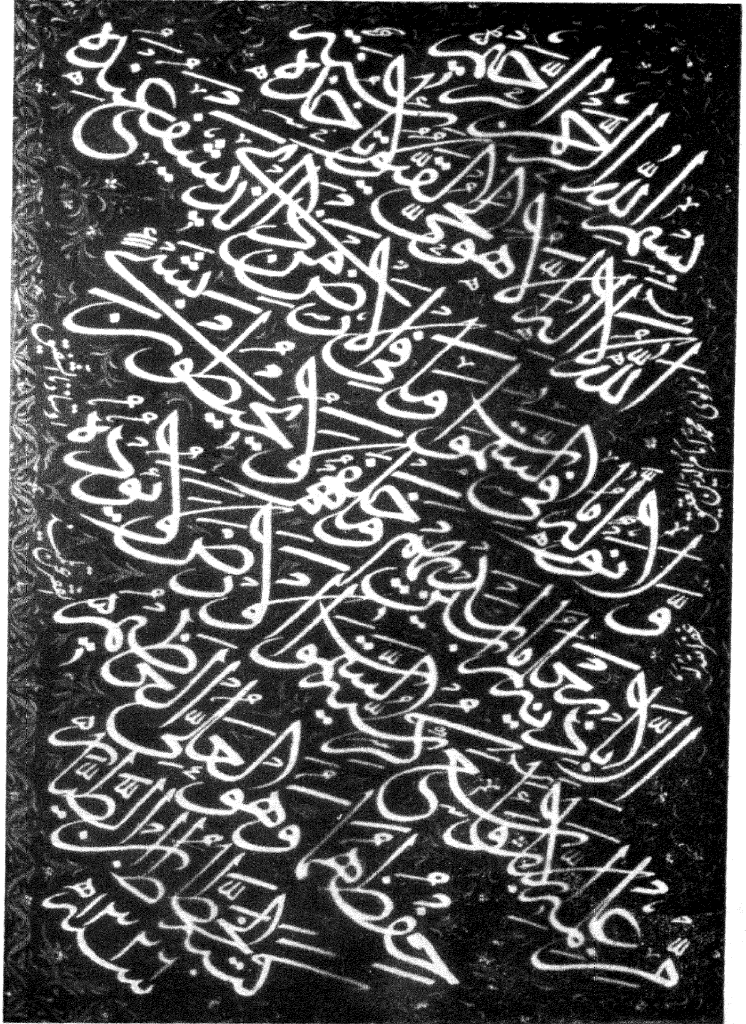 بسم الله الرحمن الرحيم
الله لا اله الا هو الحي القيوم لا تأخذه سنة
ولا نوم له ما في السموات وما في الارض من ذا الذي يشفع عنده
الا باذنه يعلم ما بين ايديهم وما خلفهم ولا يحيطون بشيء
من علمه الا بما شاء وسع كرسيه السموات والارض ولا يؤده
حفظهما وهو العلي العظيم